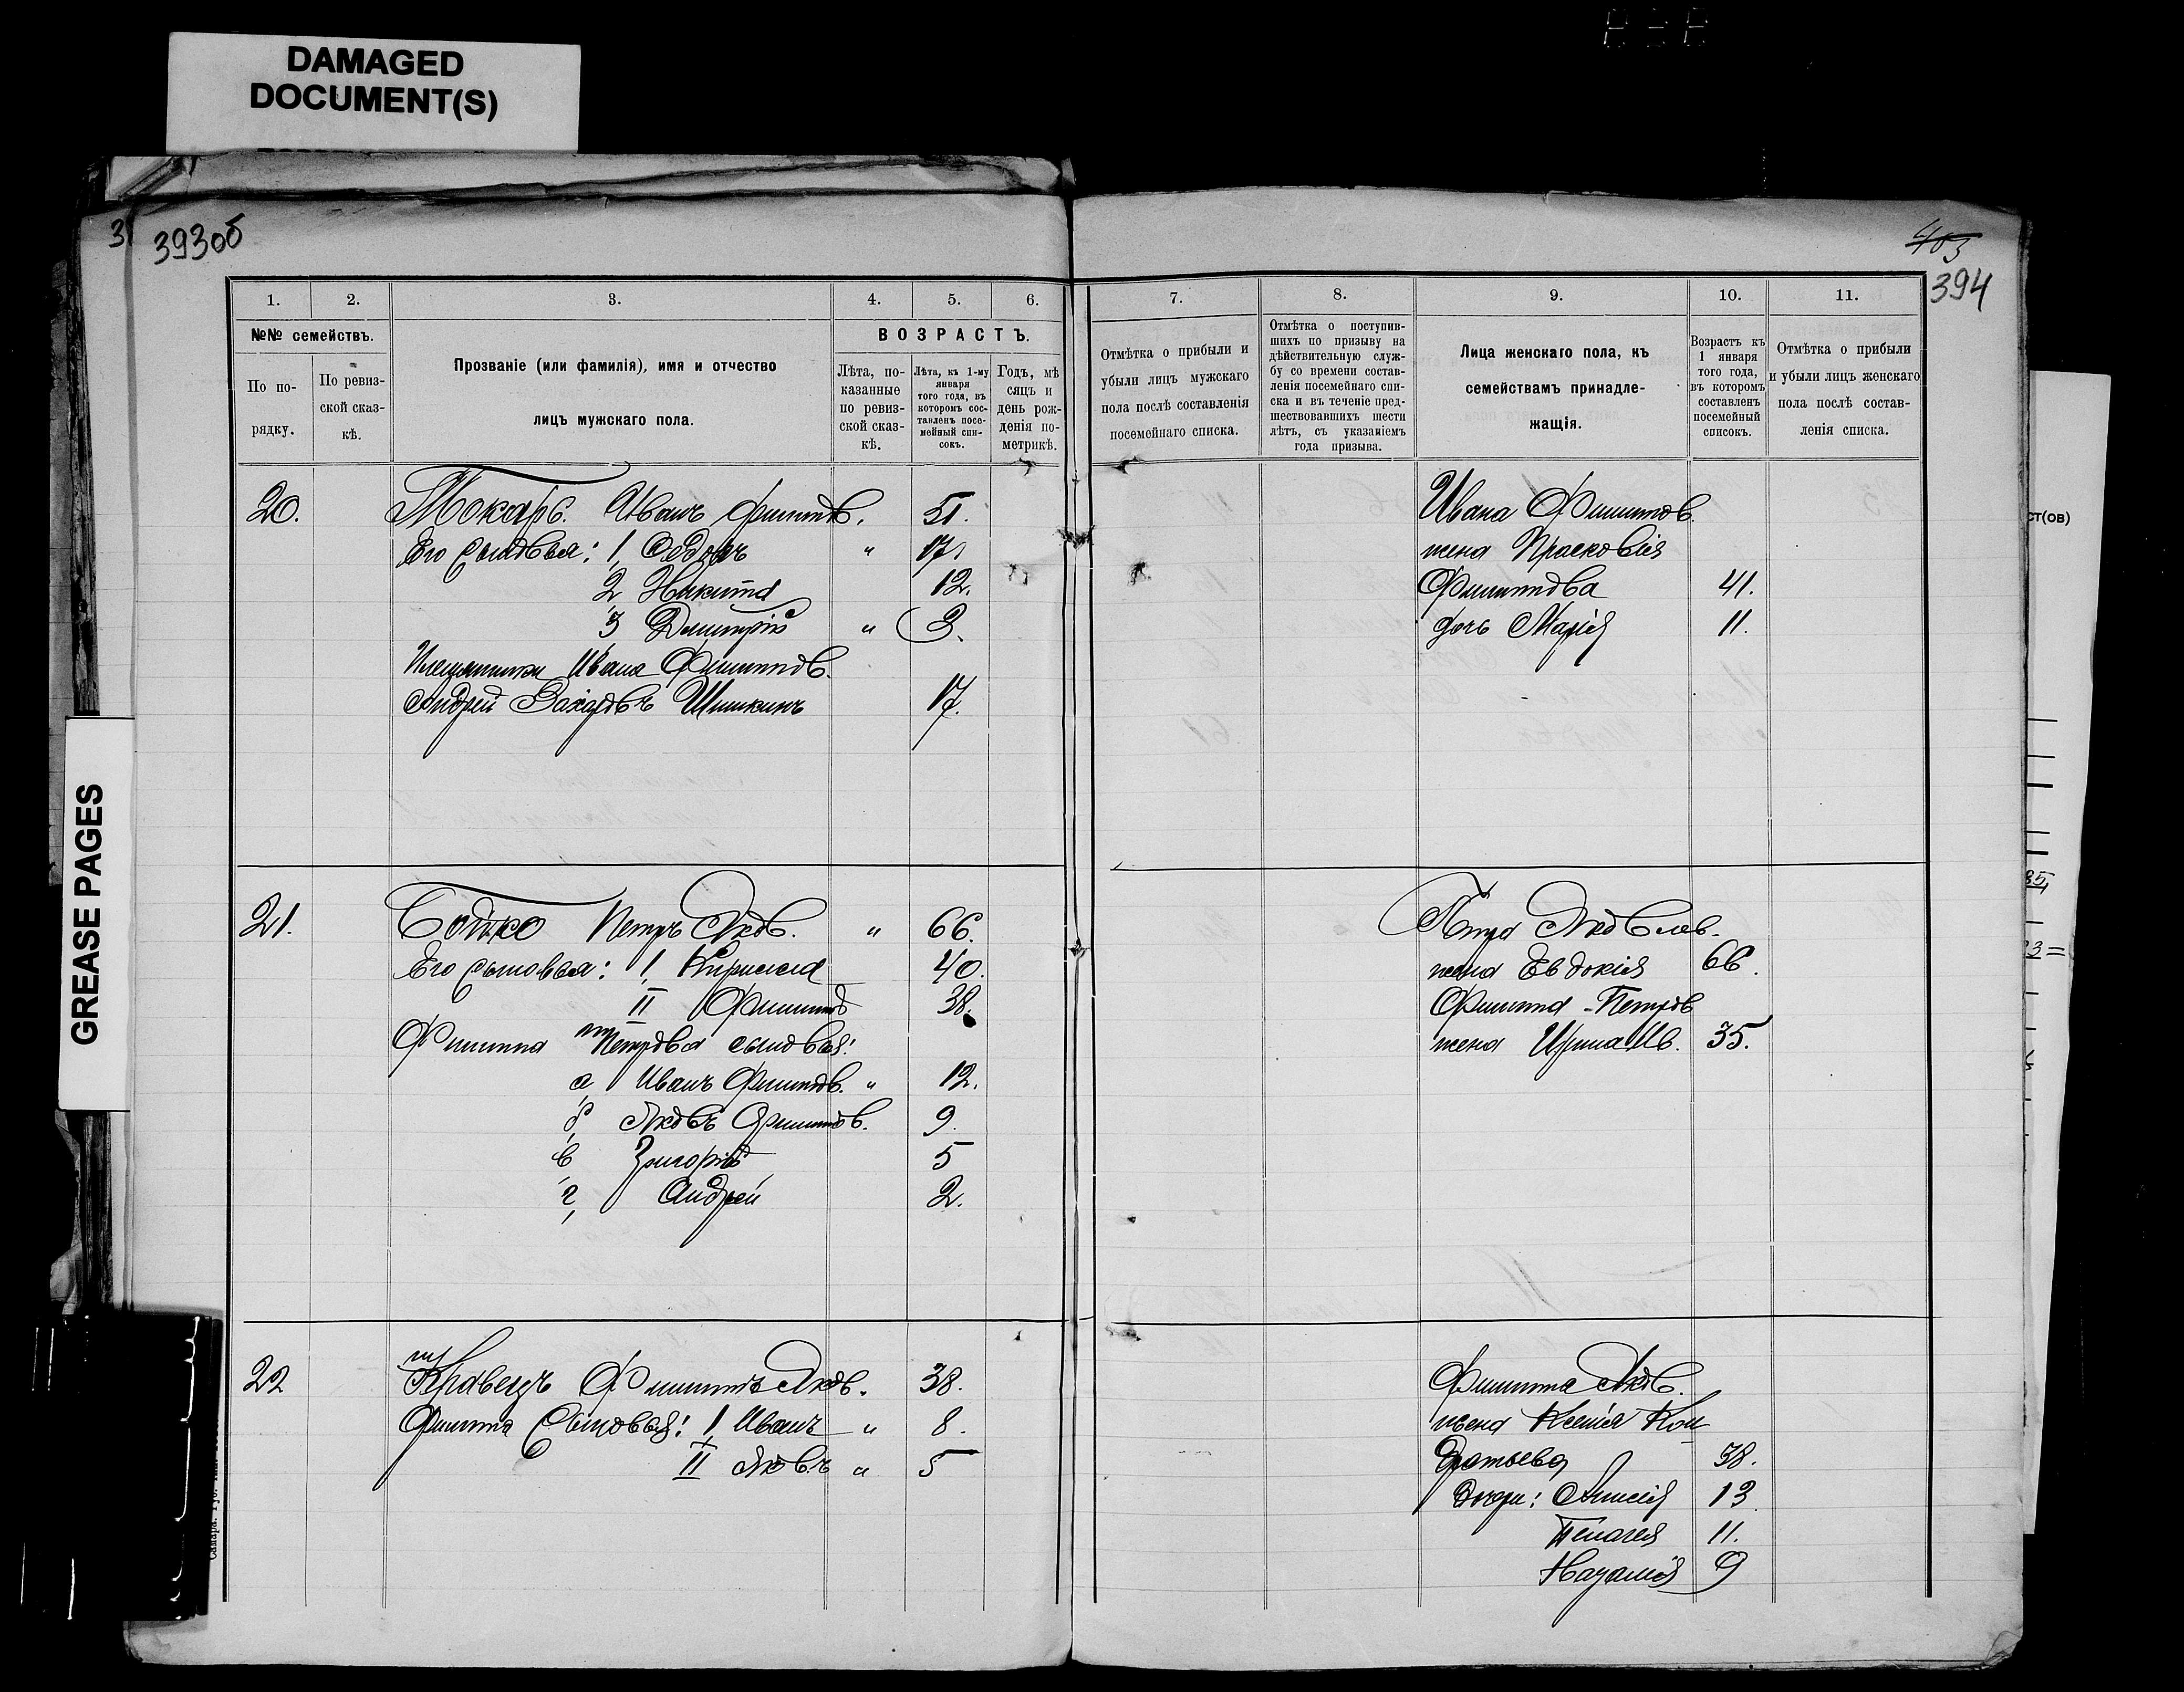 DAMAGED
DOCUMENT(S)
GREASE PAGES
393об
403
394
1.
2.
3.
4.
5.
6.
№№ семействъ.
По по-
рядку.
По ревиз-
ской сказ-
кѣ.
Прозваніе (или фамилія), имя и отчество
лицъ мужскаго пола.
ВОЗРАСТЪ.
Лѣта, по-
казанные
по ревиз-
ской сказ-
кѣ.
Лѣта, къ 1-му
января
того года, въ
которомъ сос-
тавленъ посе-
мейный спи-
сокъ.
Годъ, мѣ
сяцъ и
день рож-
денія по-
метрикѣ.
20. Токарь. Иванъ Филипов. 51.
Его сыновья: 1, Федоръ " 17
2 Никита 12.
3 Дмитрій " 3.
Племянники Ивана Филиппов.
Андрей Захаровъ Шишкинъ 17.
21. Бойко Петръ Яков. " 66.
Его сыновья: 1, Кирилла 40.
II Филиппъ 38.
Филиппа Петрова сыновья:
а, Иванъ Филиппов. " 12.
б, Яковъ Филиппов. 9.
в, Григорій 5
г, Андрей 2.
22 Кравецъ Филиппъ Яков. 38.
Филиппа Сыновья: 1, Иванъ " 8.
II Яковъ " 5
7.
8.
9.
10.
11.
Отмѣтка о прибыли и
убыли лицъ мужскаго
пола послѣ составленія
посемейнаго списка.
Отмѣтка о поступив-
шихъ по призыву на
дѣйствительную служ-
бу со времени состав-
ленія посемейнаго спи-
ска и въ теченіе пред-
шествовавшихъ шести
лѣтъ, съ указаніемъ
года призыва.
Лица женскаго пола, къ
семействамъ принадле-
жащія.
Возрастъ къ
1 января
того года,
въ которомъ
составленъ
посемейный
списокъ.
Отмѣтка о прибыли
и убыли лицъ женскаго
пола послѣ состав-
ленія списка.
Ивана Филиппов.
жена Прасковія
Филиппова 41.
дочь Марія 11.
Петра Яковлев.
жена Евдокія 66.
Филиппа Петров
жена Ирина Ив. 35.
Филиппа Яков.
жена Ксенія Кон
дратьева 38.
Дочери: Анисія 13
Пелагея 11.
Наталія 9
ст(ов)